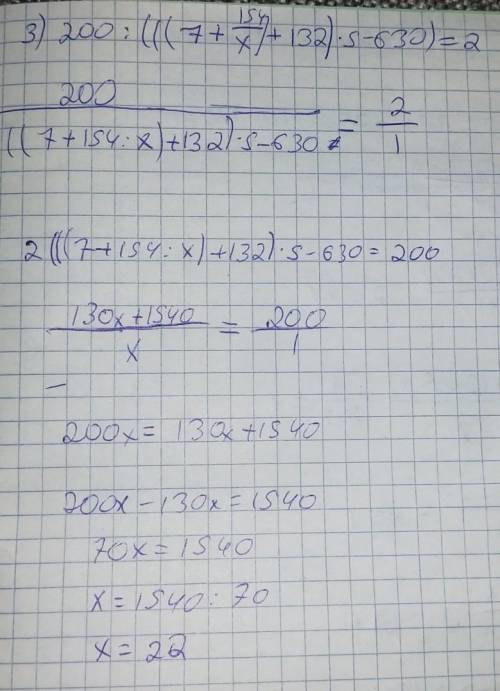 3) 200 : (((7 + 154/x) + 132) · 5 - 630) = 2
200 / ((7 + 154 : x) + 132) · 5 - 630 = 2/1
2(((7 + 154 : x) + 132) · 5 - 630 = 200
130x + 1540 / x = 200 / 1
–
200x = 130x + 1540
200x - 130x = 1540
70x = 1540
x = 1540 : 70
x = 22